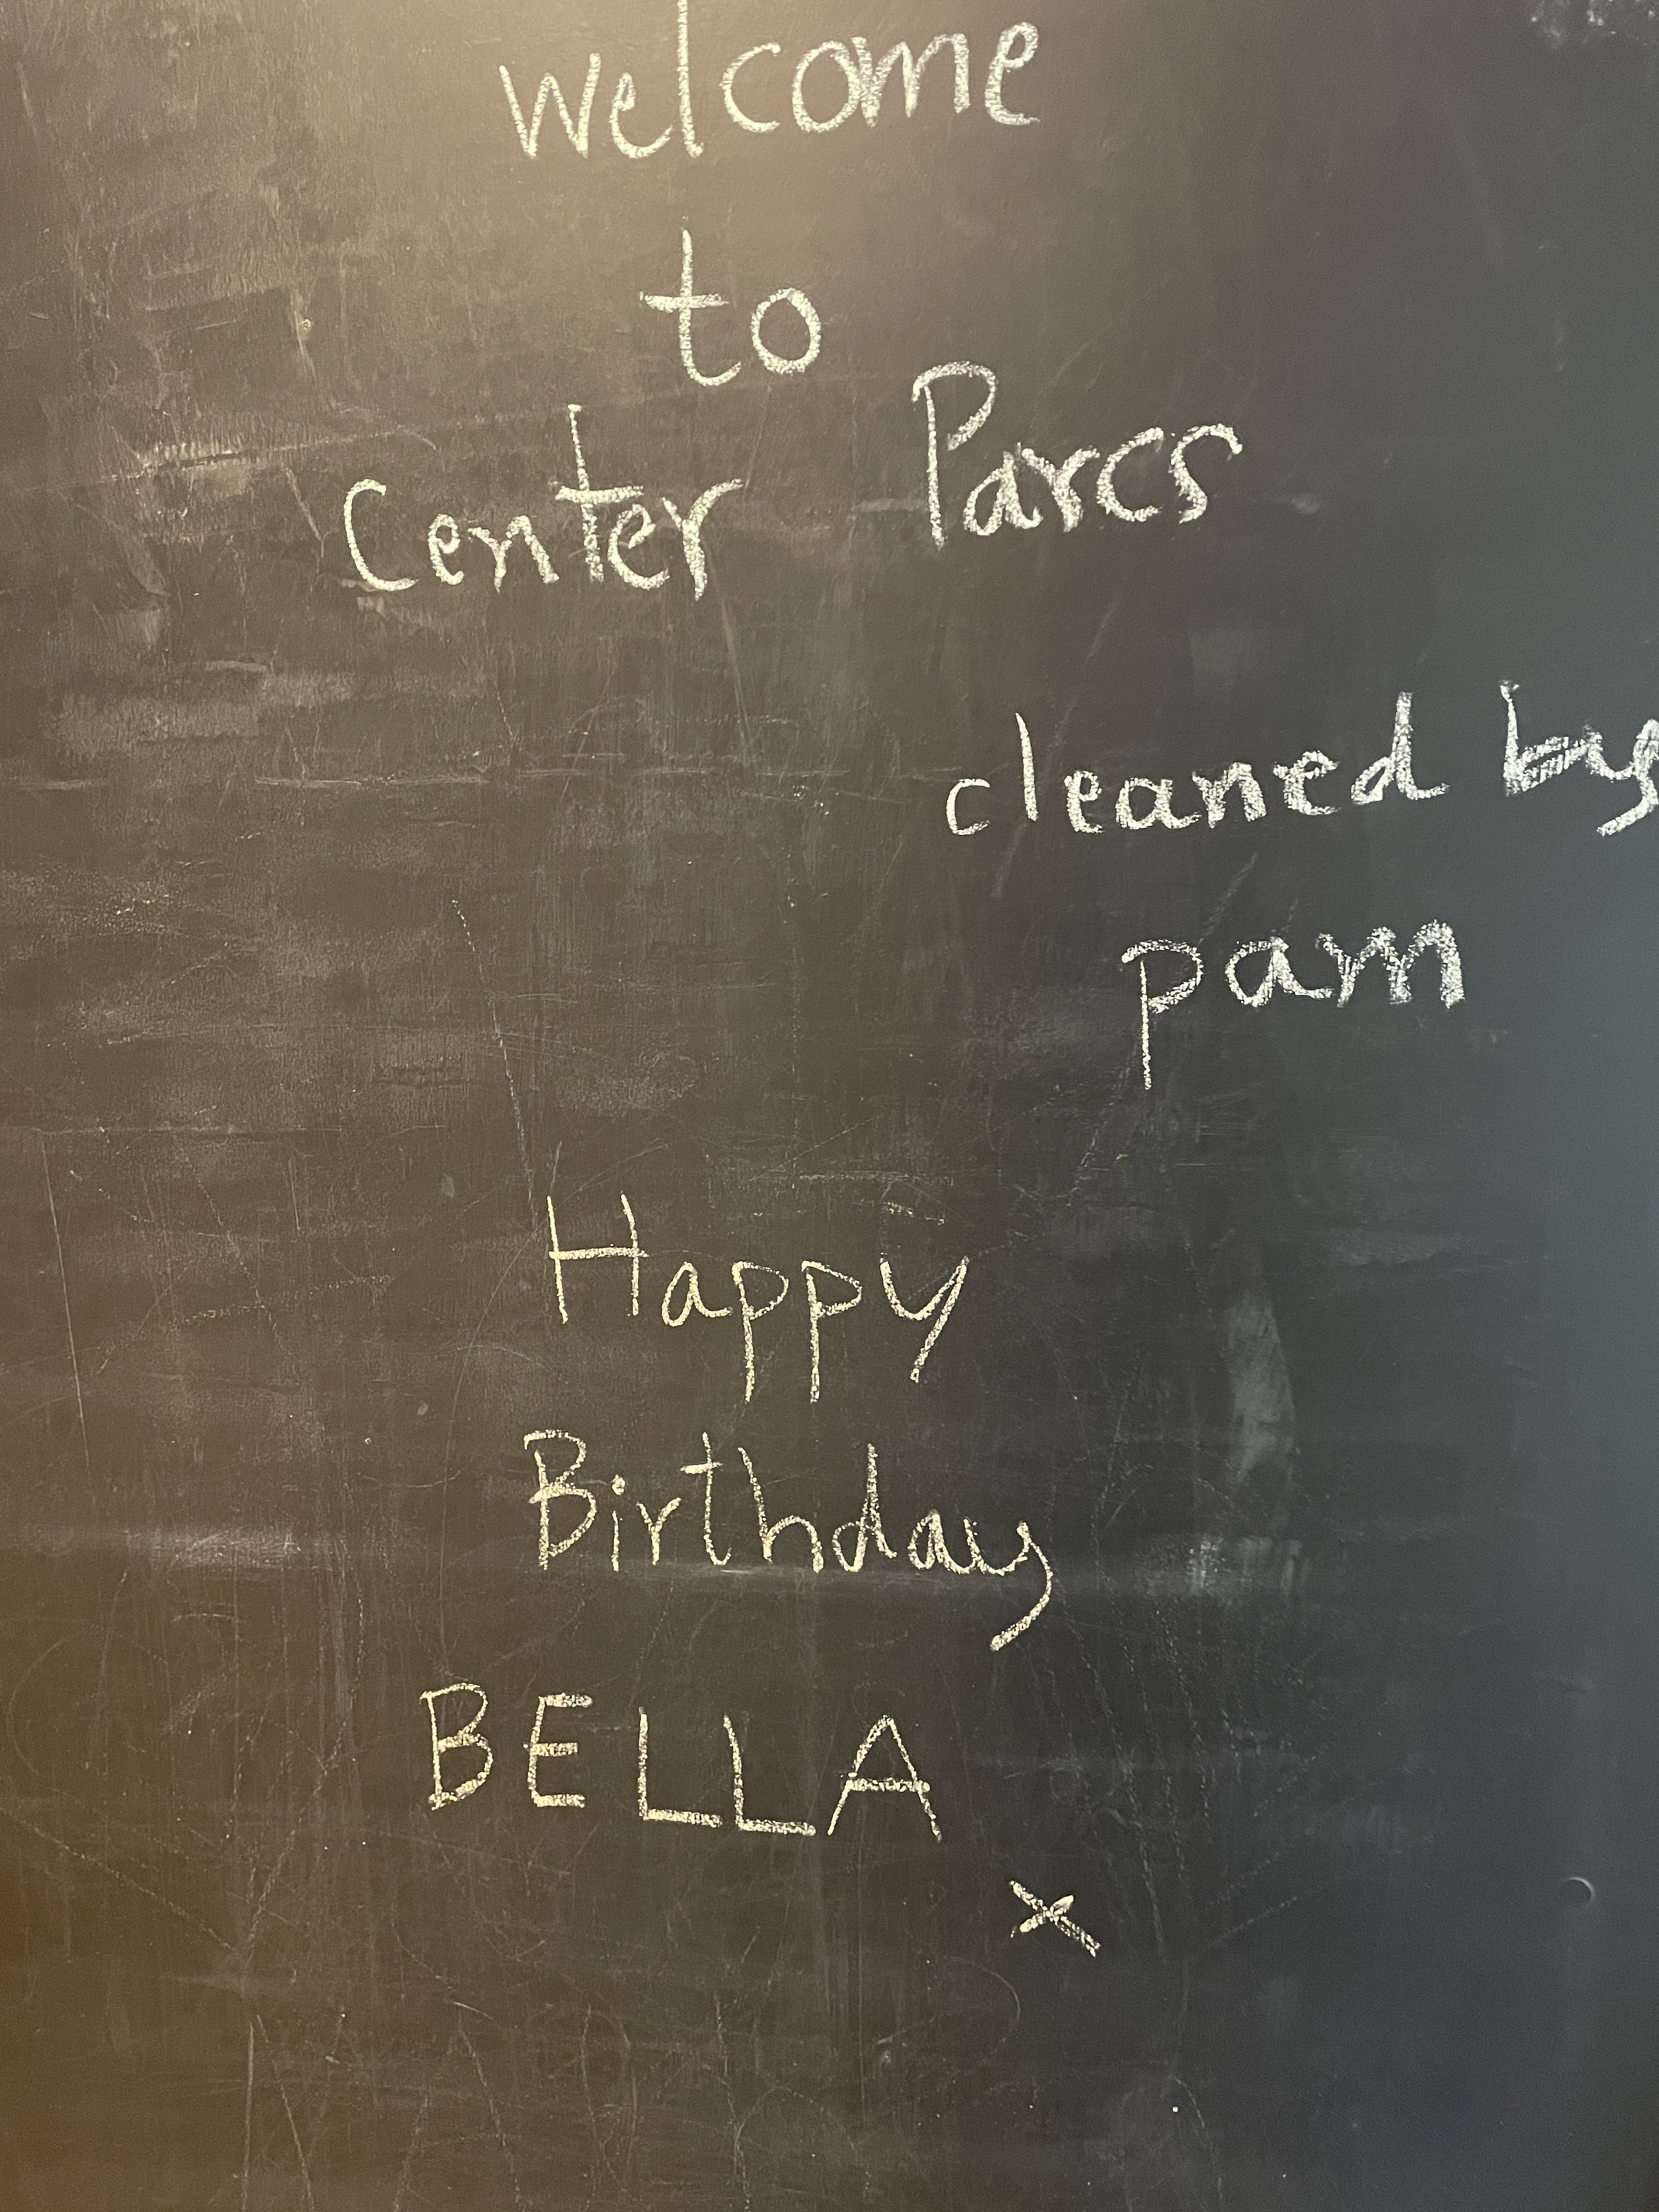 welcome
to
Center Parcs
cleaned by
pam
Happy
Birthday
BELLA
x